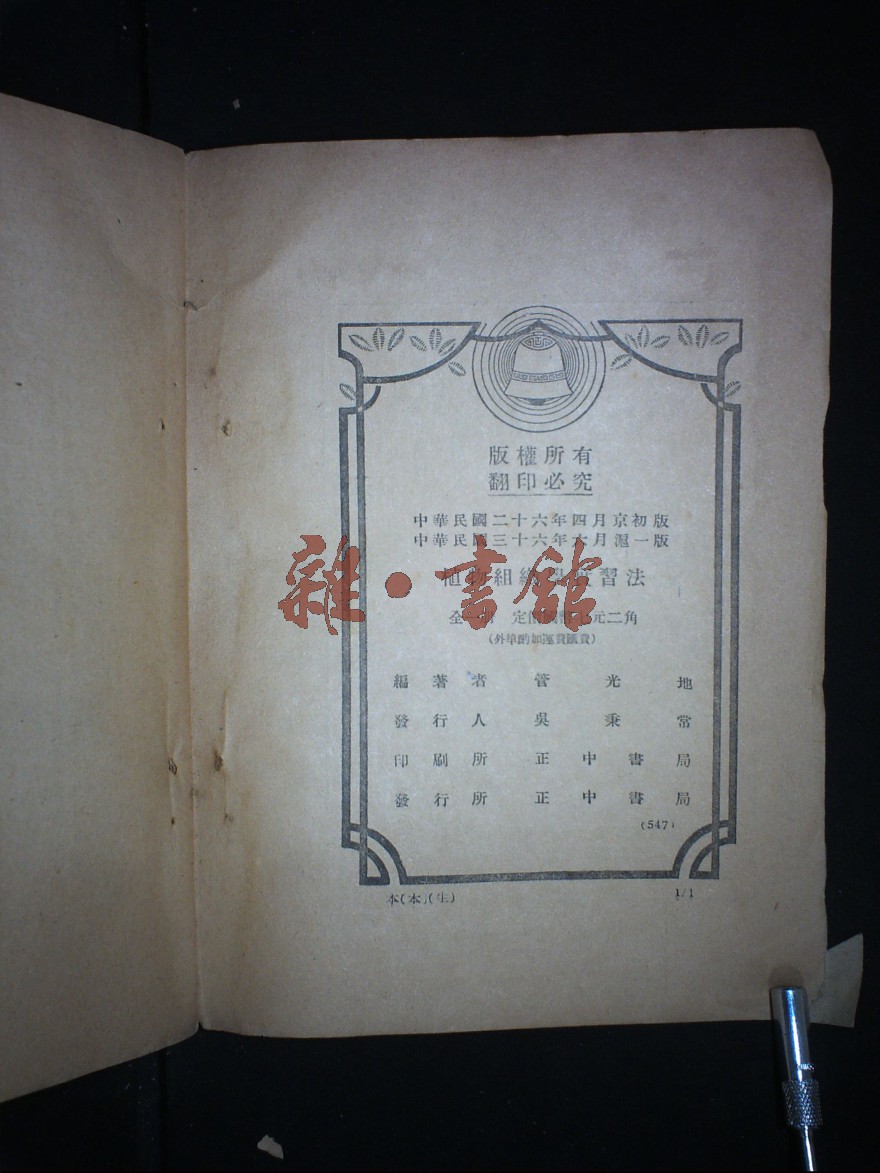 版權所有
翻印必究
中華民國二十六年四月京初版
中華民國三十六年六月滬一版
植物組織學實習法
全一冊 定價國幣 元二角
(外埠酌加運費匯費)
編著者 管光地
發行人 吳秉常
印刷所 正中書局
發行所 正中書局
(547)
本(本)(生)
1/1
雜·書館